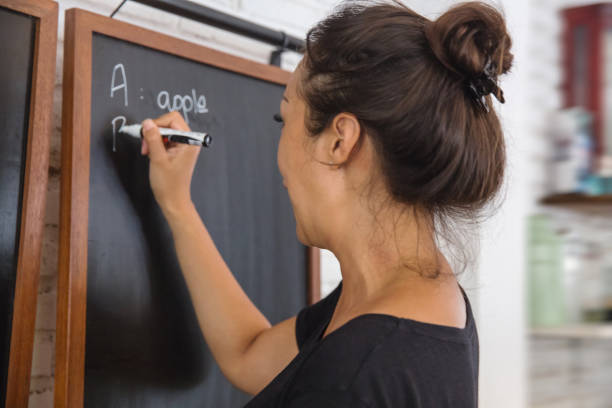 A : apple
B